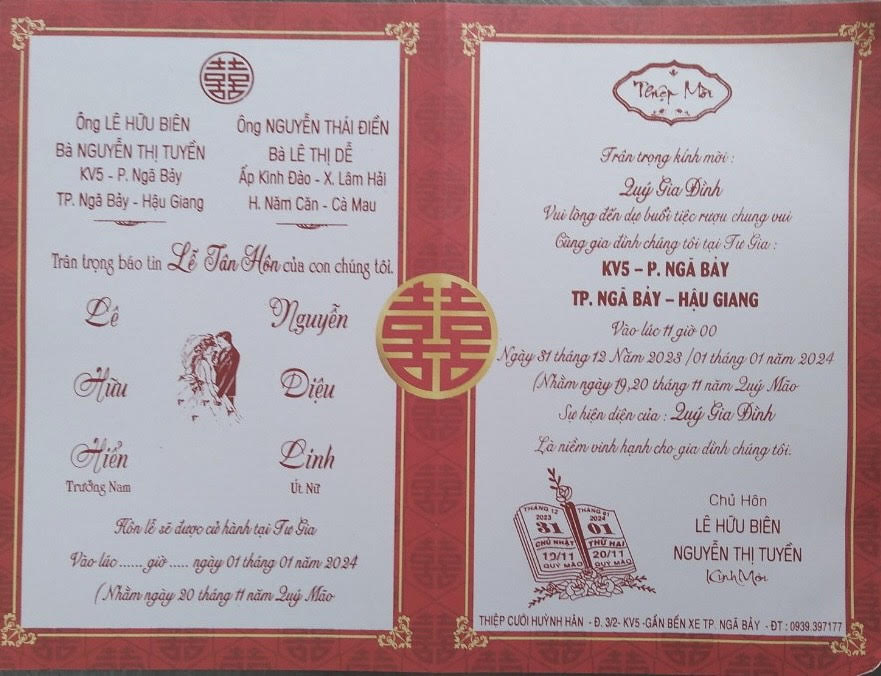 囍
Ông LÊ HỮU BIÊN
Bà NGUYỄN THỊ TUYỀN
KV5 - P. Ngã Bảy
TP. Ngã Bảy - Hậu Giang
Ông NGUYỄN THÁI ĐIỀN
Bà LÊ THỊ DỄ
Ấp Kinh Đào - X. Lâm Hải
H. Năm Căn - Cà Mau
Trân trọng báo tin Lễ Tân Hôn của con chúng tôi.
Lê
Hữu
Hiển
Trưởng Nam
Nguyễn
Diệu
Linh
Út Nữ
Hôn lễ sẽ được cử hành tại Tư Gia
Vào lúc ...... giờ ..... ngày 01 tháng 01 năm 2024
(Nhằm ngày 20 tháng 11 năm Quý Mão
囍
Thiệp Mời
Trân trọng kính mời :
Quý Gia Đình
Vui lòng đến dự buổi tiệc rượu chung vui
Cùng gia đình chúng tôi tại Tư Gia :
KV5 – P. NGÃ BẢY
TP. NGÃ BẢY – HẬU GIANG
Vào lúc 11 giờ 00
Ngày 31 tháng 12 Năm 2023 /01 tháng 01 năm 2024
(Nhằm ngày 19,20 tháng 11 năm Quý Mão
Sự hiện diện của : Quý Gia Đình
Là niềm vinh hạnh cho gia đình chúng tôi.
THÁNG 12
2023
31
CHỦ NHẬT
19/11
QUÝ MÃO
THÁNG 01
2024
01
THỨ HAI
20/11
QUÝ MÃO
Chủ Hôn
LÊ HỮU BIÊN
NGUYỄN THỊ TUYỀN
Kính Mời
THIỆP CƯỚI HUỲNH HÂN - Đ. 3/2- KV5 -GẦN BẾN XE TP. NGÃ BẢY - ĐT : 0939.397177